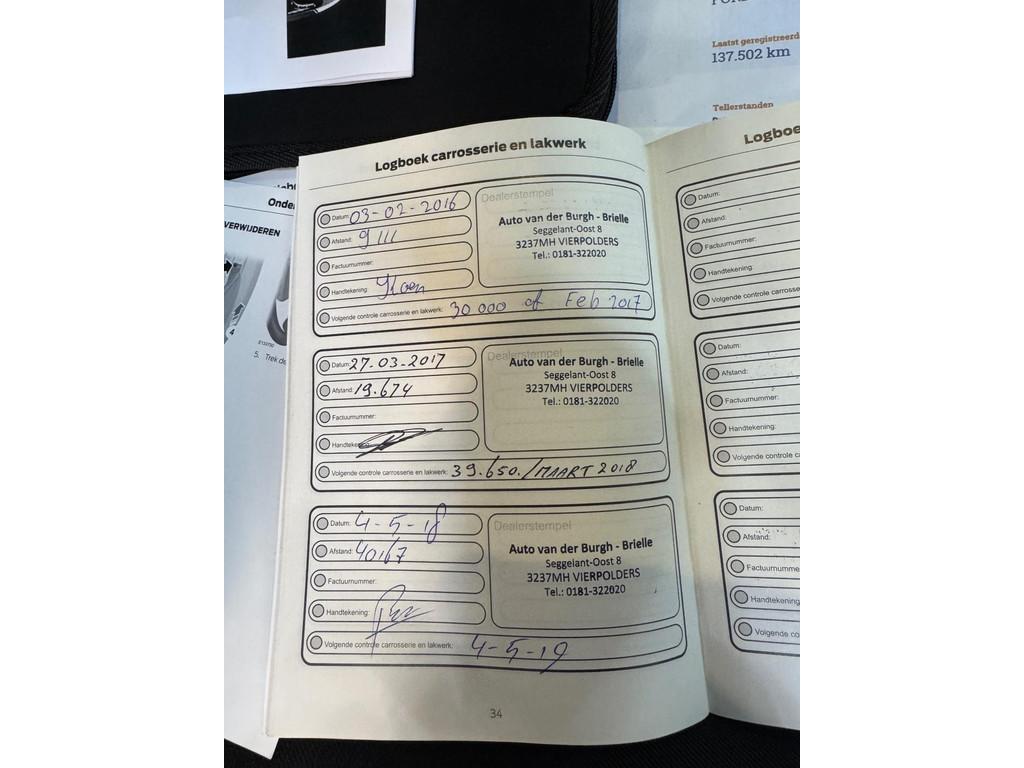 Laatst geregistreerd
137.502 km
Tellerstanden
Logboek carrosserie en lakwerk
Datum: 03-02-2016
Afstand: 9111
Factuurnummer:
Handtekening:
Volgende controle carrosserie en lakwerk: 30 000 of Feb 2017
Dealerstempel
Auto van der Burgh - Brielle
Seggelant-Oost 8
3237MH VIERPOLDERS
Tel.: 0181-322020
Datum: 27-03-2017
Afstand: 19.674
Factuurnummer:
Handtekening:
Volgende controle carrosserie en lakwerk: 39.650./MAART 2018
Dealerstempel
Auto van der Burgh - Brielle
Seggelant-Oost 8
3237MH VIERPOLDERS
Tel.: 0181-322020
Datum: 4-5-18
Afstand: 40167
Factuurnummer:
Handtekening:
Volgende controle carrosserie en lakwerk: 4-5-19
Dealerstempel
Auto van der Burgh - Brielle
Seggelant-Oost 8
3237MH VIERPOLDERS
Tel.: 0181-322020
34
Logboe
Datum:
Afstand:
Factuurnummer:
Handtekening:
Volgende controle carrosse
Datum:
Afstand:
Factuurnummer:
Handtekening:
Volgende controle c
Datum:
Afstand:
Factuurnumme
Handtekening
Volgende co
Onde
VERWIJDEREN
4
5. Trek de